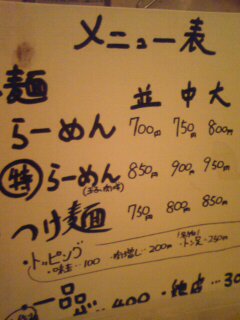 メニュー表
麺 並 中 大
らーめん 700円 750円 800円
特 らーめん 850円 900円 950円
つけ麺 750円 800円 850円
・トッピング
・味玉…100 ・肉増し…200円 ・トン足…250円
一品